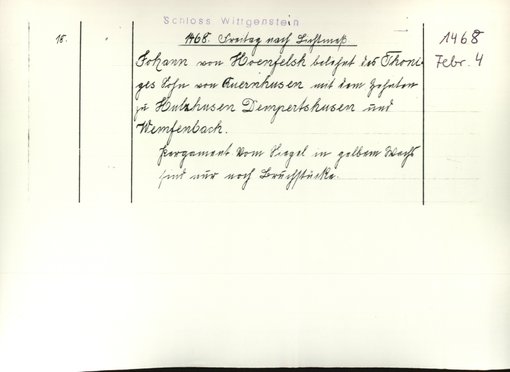 Schloss Wittgenstein
15.
1468. Freitag nach Lichtmeß
1468
Febr. 4
Johann von Hoenfelsh belehnt des Thoni-
ges Sohn von Auernhusen mit dem Zehnten
zu Hutzhusen Dempertshusen und
Wemfenbach.
Pergament Vom Siegel in gelbem Wachs
sind nur noch Bruchstücke.